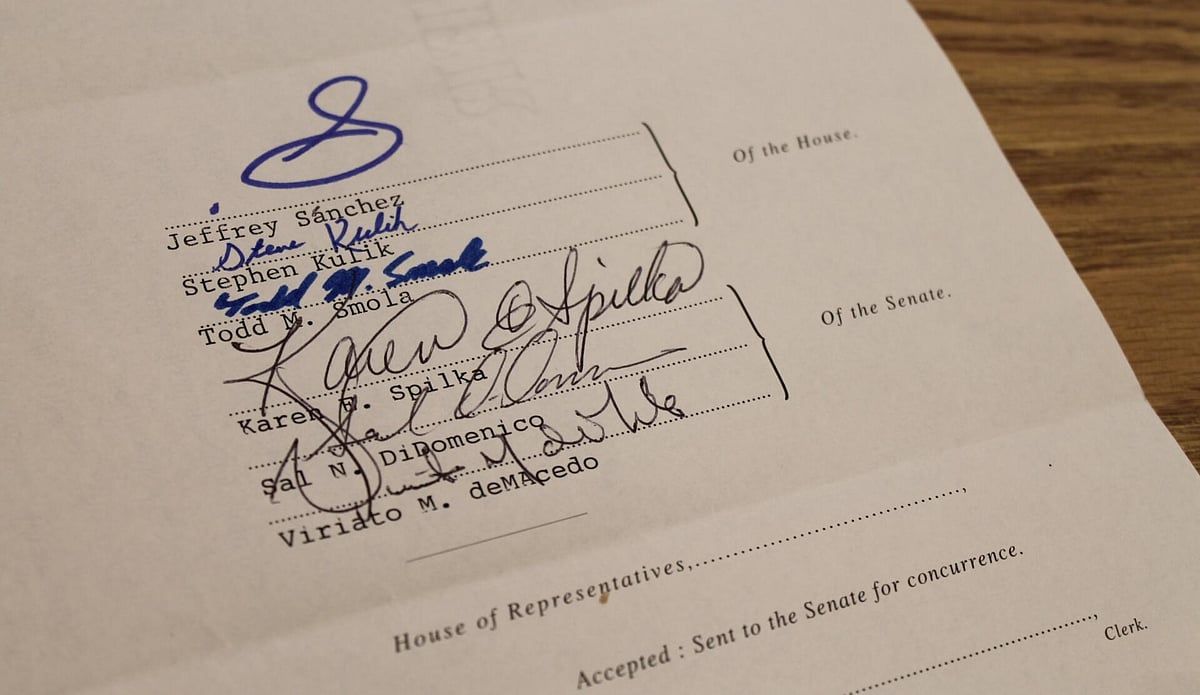 Jeffrey Sánchez
Steve Kulik
Stephen Kulik
Todd M. Smola
Todd M. Smola
Karen E Spilka
Karen E. Spilka
Sal
Sal N. DiDomenico
Viriato M. deMAcedo
Of the House.
Of the Senate.
House of Representatives,
Accepted : Sent to the Senate for concurrence.
Clerk.